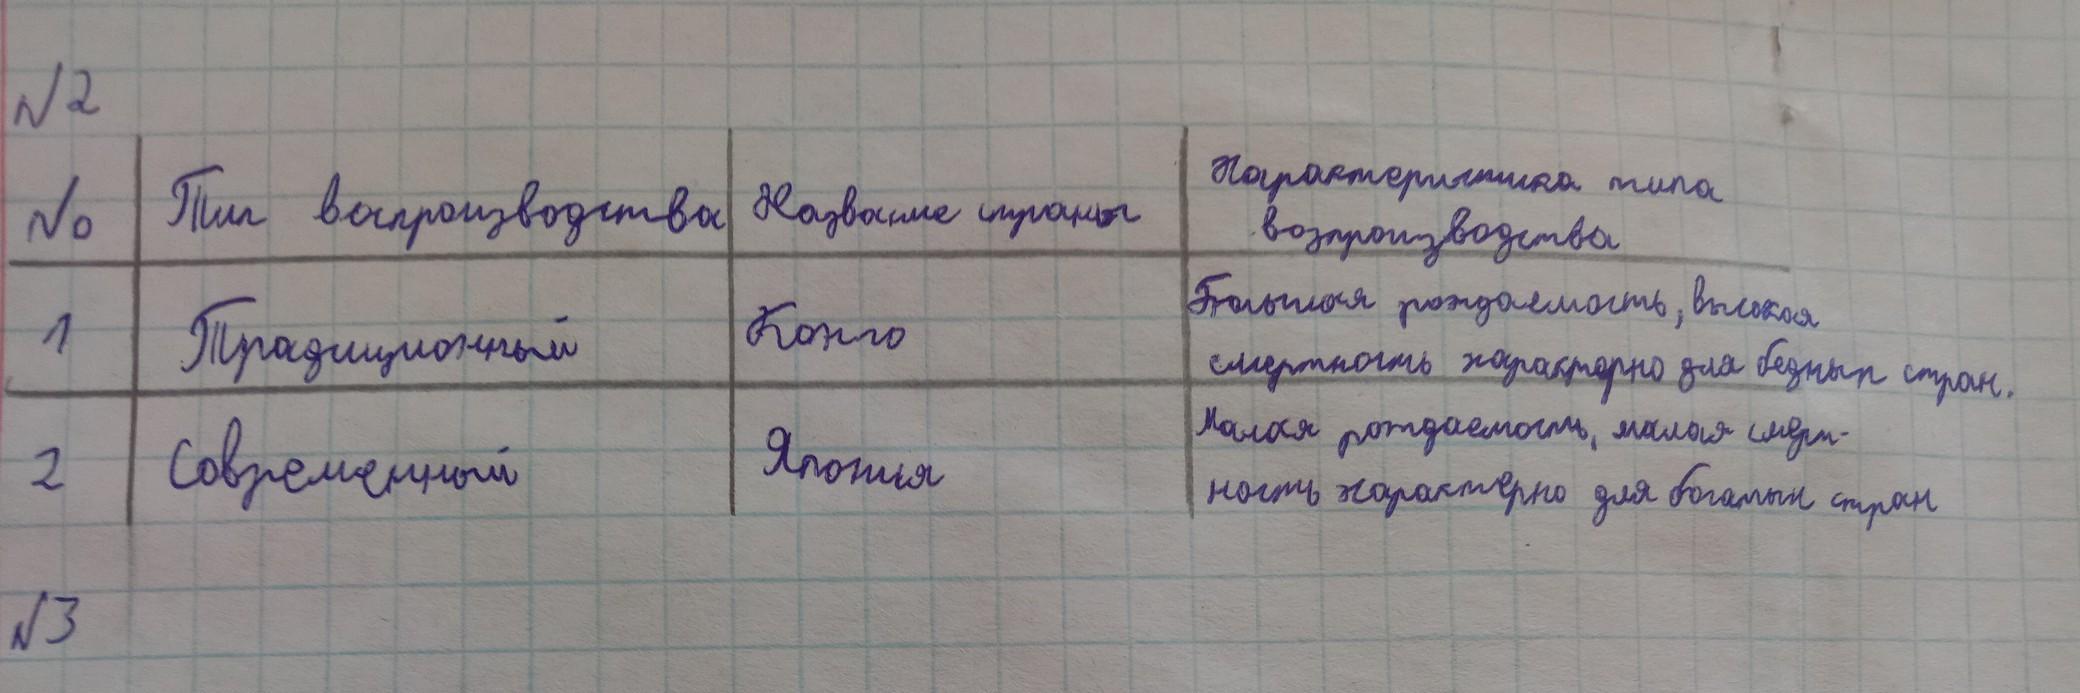 №2
№ Тип воспроизводства Название страны Характеристика типа
возпроизводства
1 Традиционный Конго Большая рождаемость, высокая
смертность характерно для бедных стран.
2 Современный Япония Малая рождаемость, малая смерт-
ность характерно для богатых стран
№3